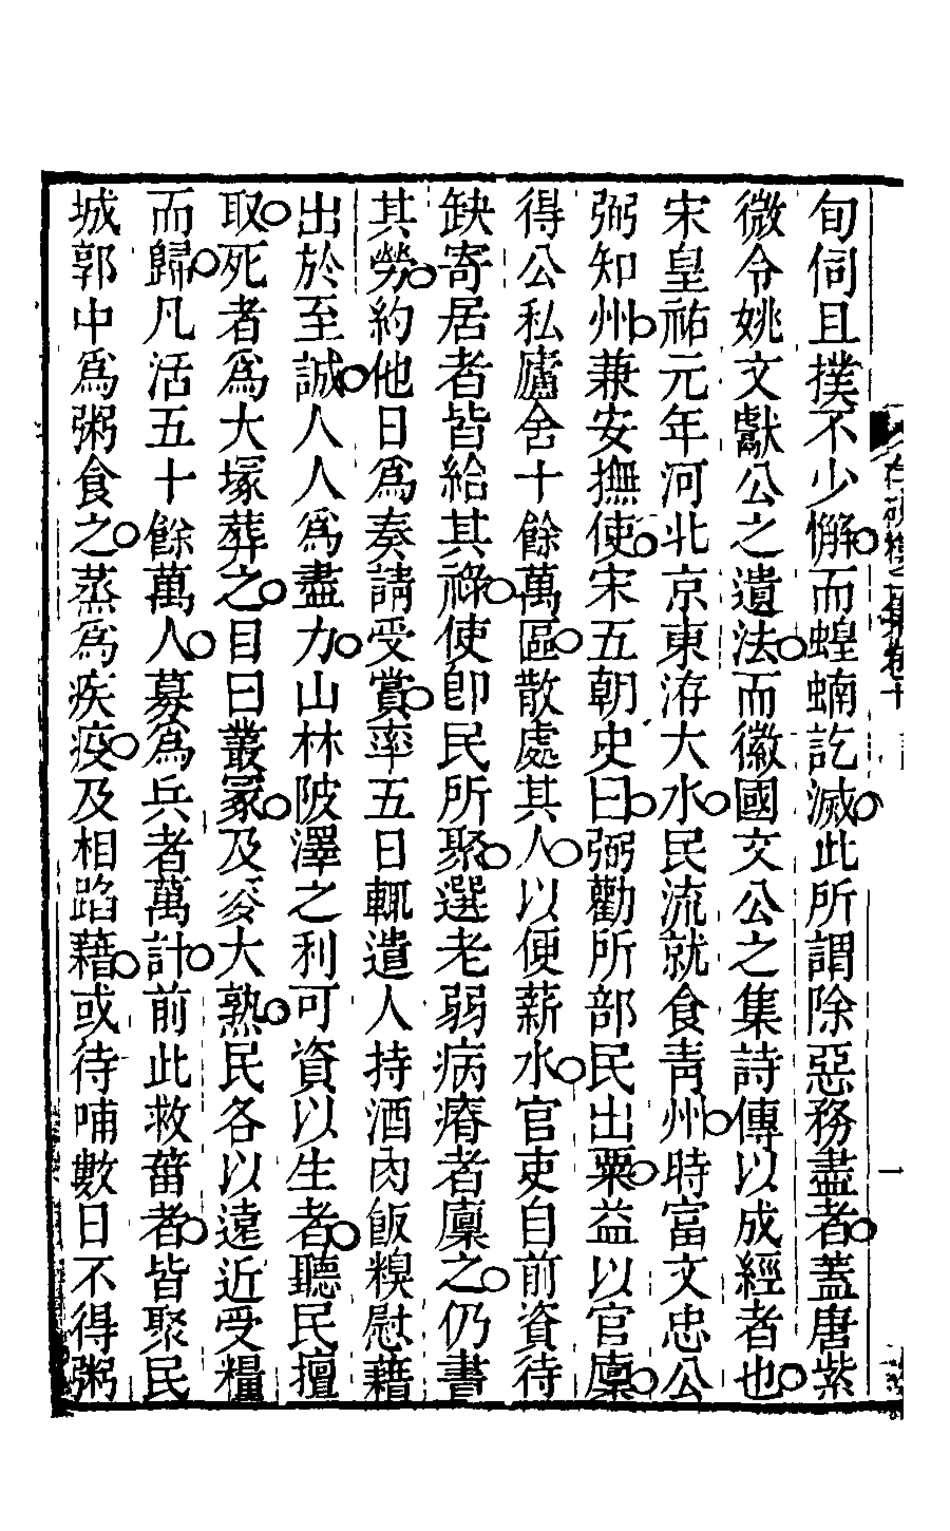 旬伺且撲不少懈○而蝗蝻訖滅○此所謂除惡務盡者○蓋唐紫
微令姚文獻公之遺法○而徽國文公之集詩傳以成經者也○
宋皇祐元年河北京東洊大水○民流就食靑州○時富文忠公
弼知州○兼安撫使○宋五朝史曰○弼勸所部民出粟○益以官廩○
得公私廬舍十餘萬區○散處其人○以便薪水○官吏自前資待
缺寄居者皆給其祿○使卽民所聚○選老弱病瘠者廩之○仍書
其勞○約他日爲奏請受賞○率五日輒遣人持酒肉飯糗慰藉
出於至誠○人人爲盡力○山林陂澤之利可資以生者○聽民擅
取○死者爲大塚葬之○目曰叢冢○及麥大熟○民各以遠近受糧
而歸○凡活五十餘萬人○募爲兵者萬計○前此救葘者○皆聚民
城郭中爲粥食之○蒸爲疾疫○及相蹈藉○或待哺數日不得粥
集卷十
一